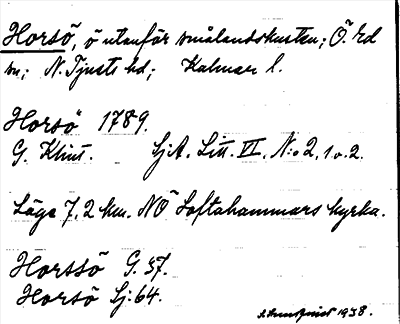 Horsö, ö utanför smålandskusten; Ö. Ed
sn; N. Tjusts hd; Kalmar l.
Horsö 1789.
G. Klint. Sj.A. Litt. VI. N:o 2, 1 o. 2.
Läge 7,2 km. NÖ Loftahammars kyrka.
Horssö G. 57.
Horsö Sj. 64.
1938.